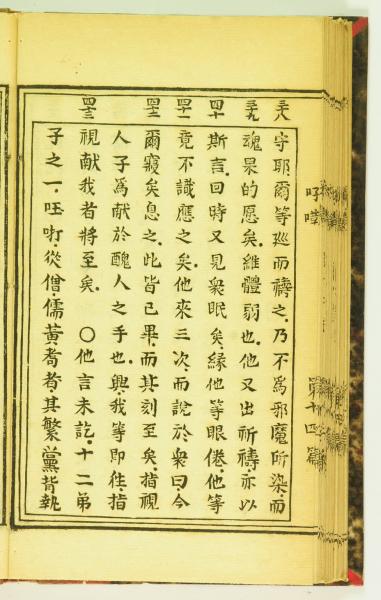 三八 守耶.爾等廵而禱之.乃不為邪魔所染.而
三九 魂果的愿矣.維體弱也.他又出祈禱.亦以
四十 斯言.回時又見衆眠矣.緣他等眼倦.他等
四十一 竟不識應之矣.他來三次.而說於衆曰.今
四十二 爾寢矣息之.此皆已畢.而其刻至矣.指視
人子為献於醜人之手也.興.我等即往.指
四十三 視献我者將至矣.〇他言未訖.十二弟
子之一.從僧儒黃耇者.其繁黨背執
第十四篇